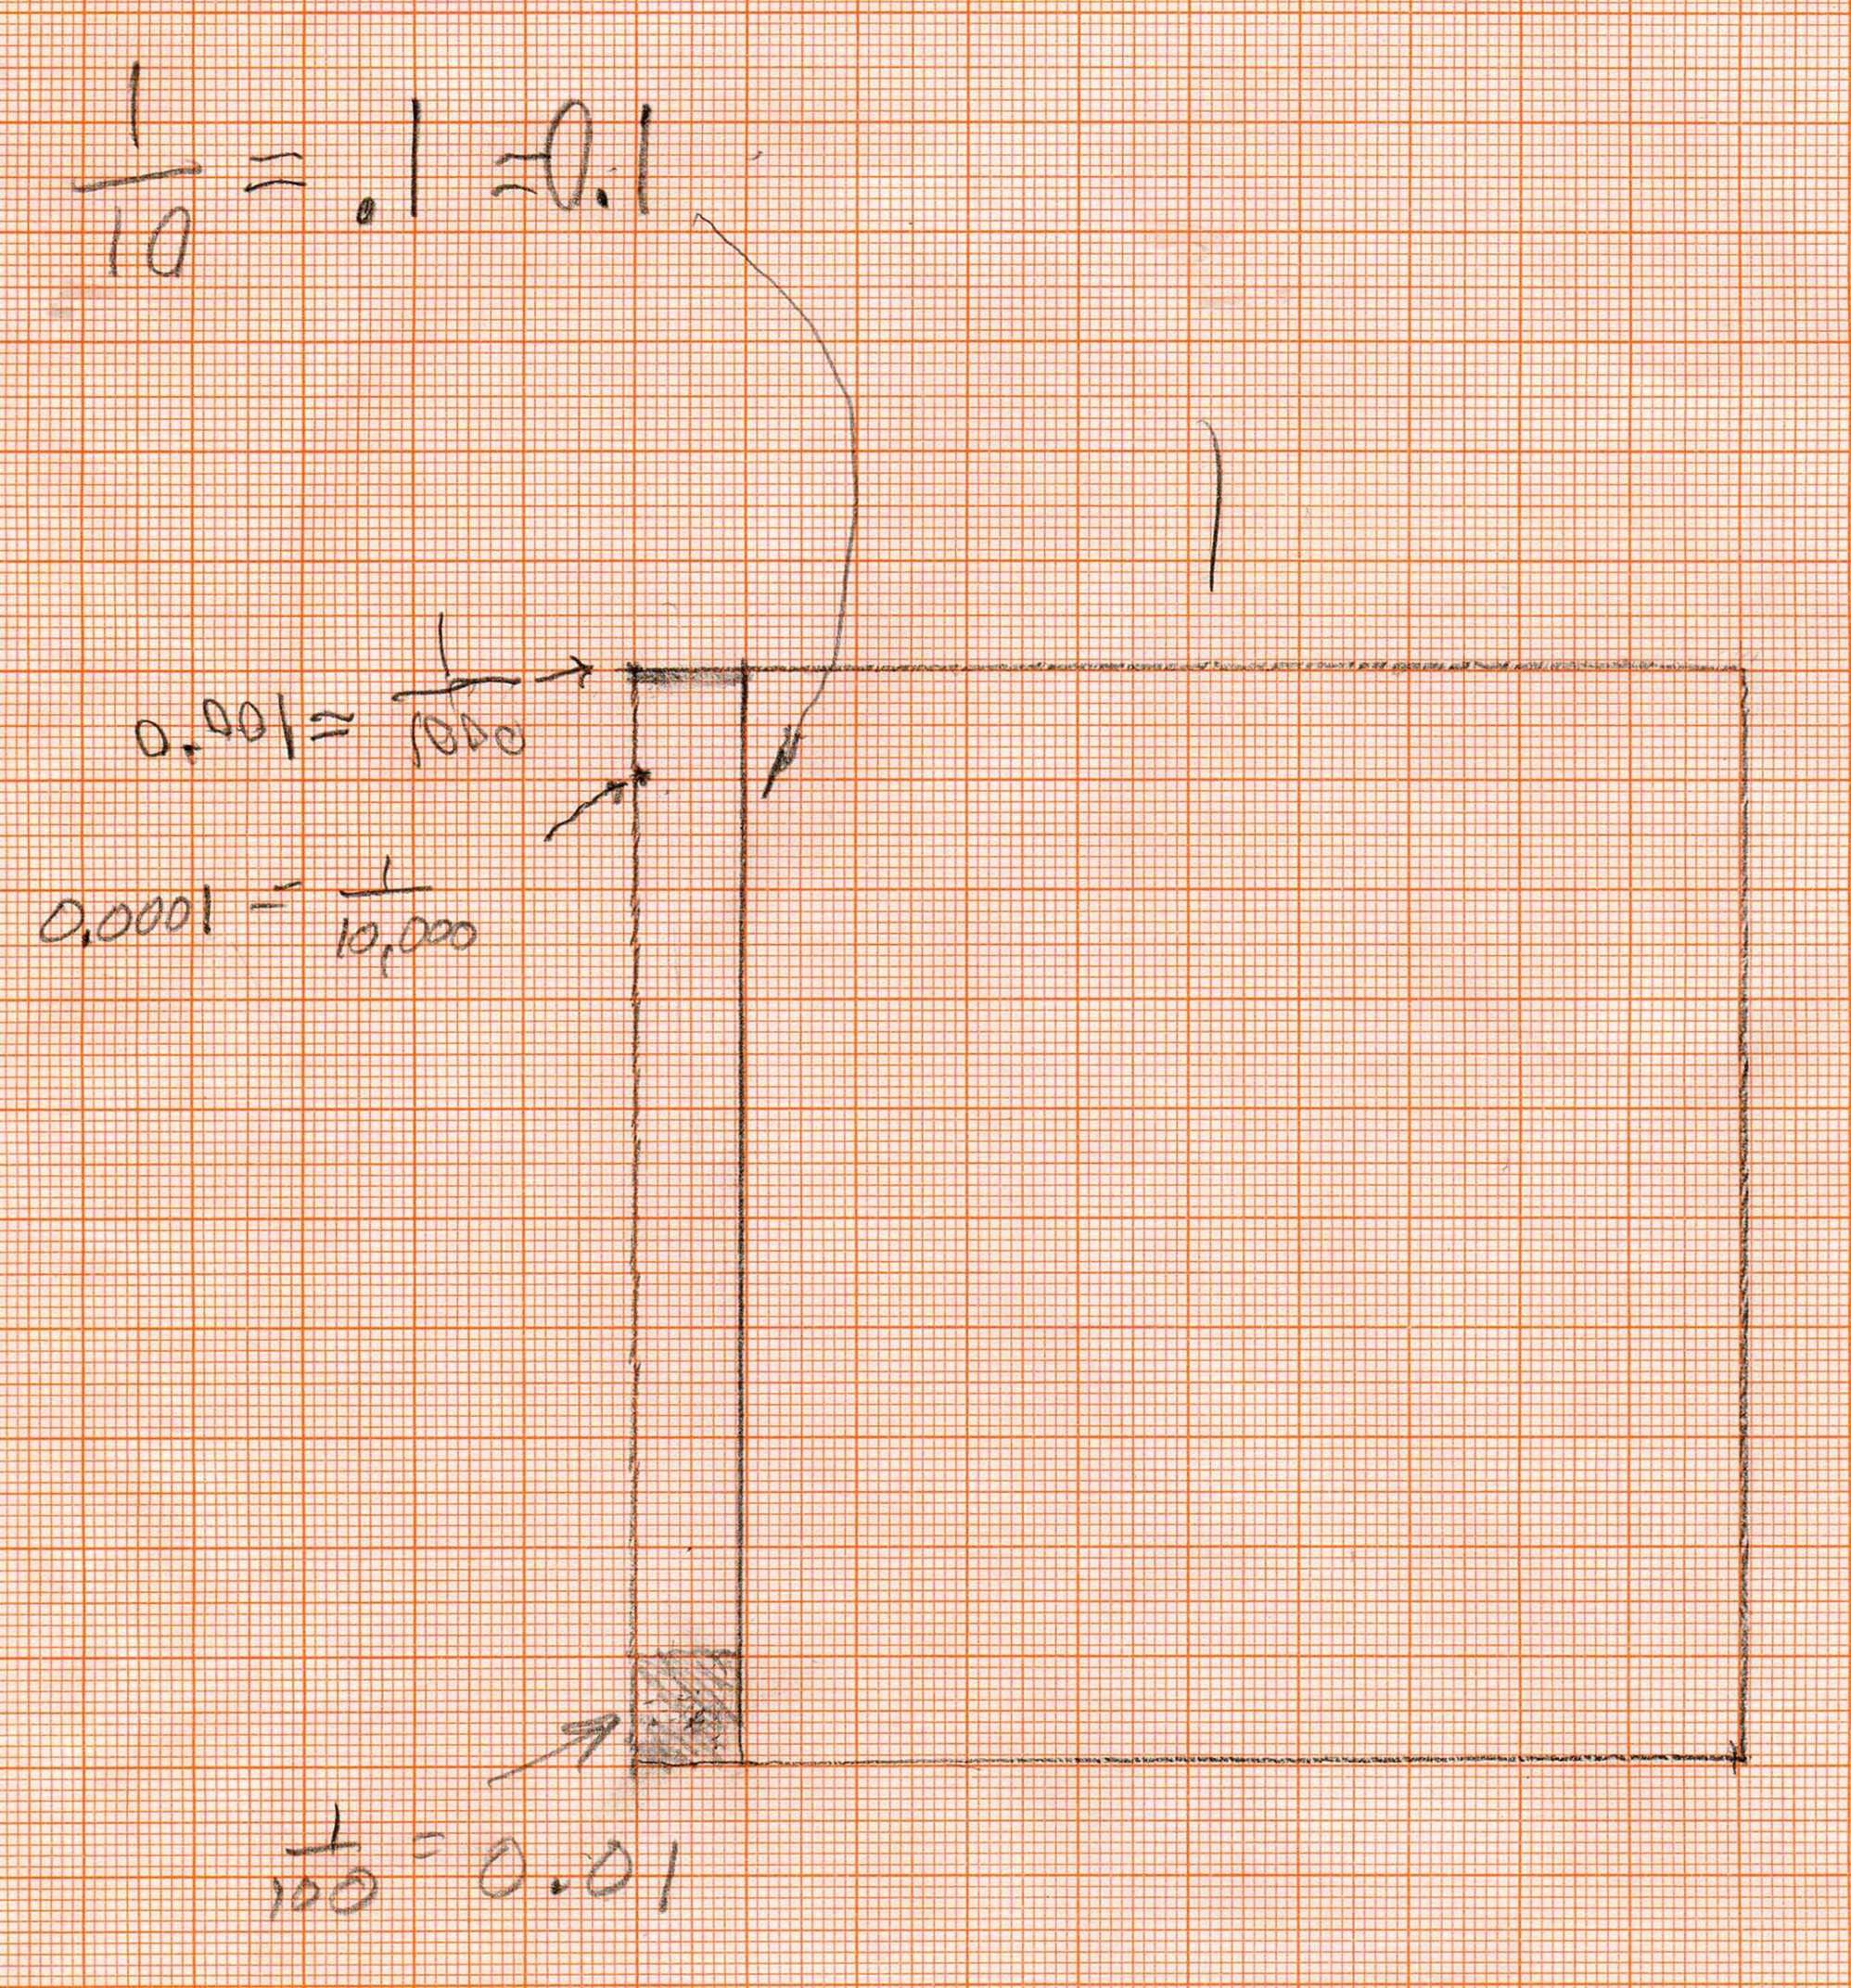 1/10 = .1 = 0.1
1
0.001 = 1/1000
0.0001 = 1/10,000
1/100 = 0.01